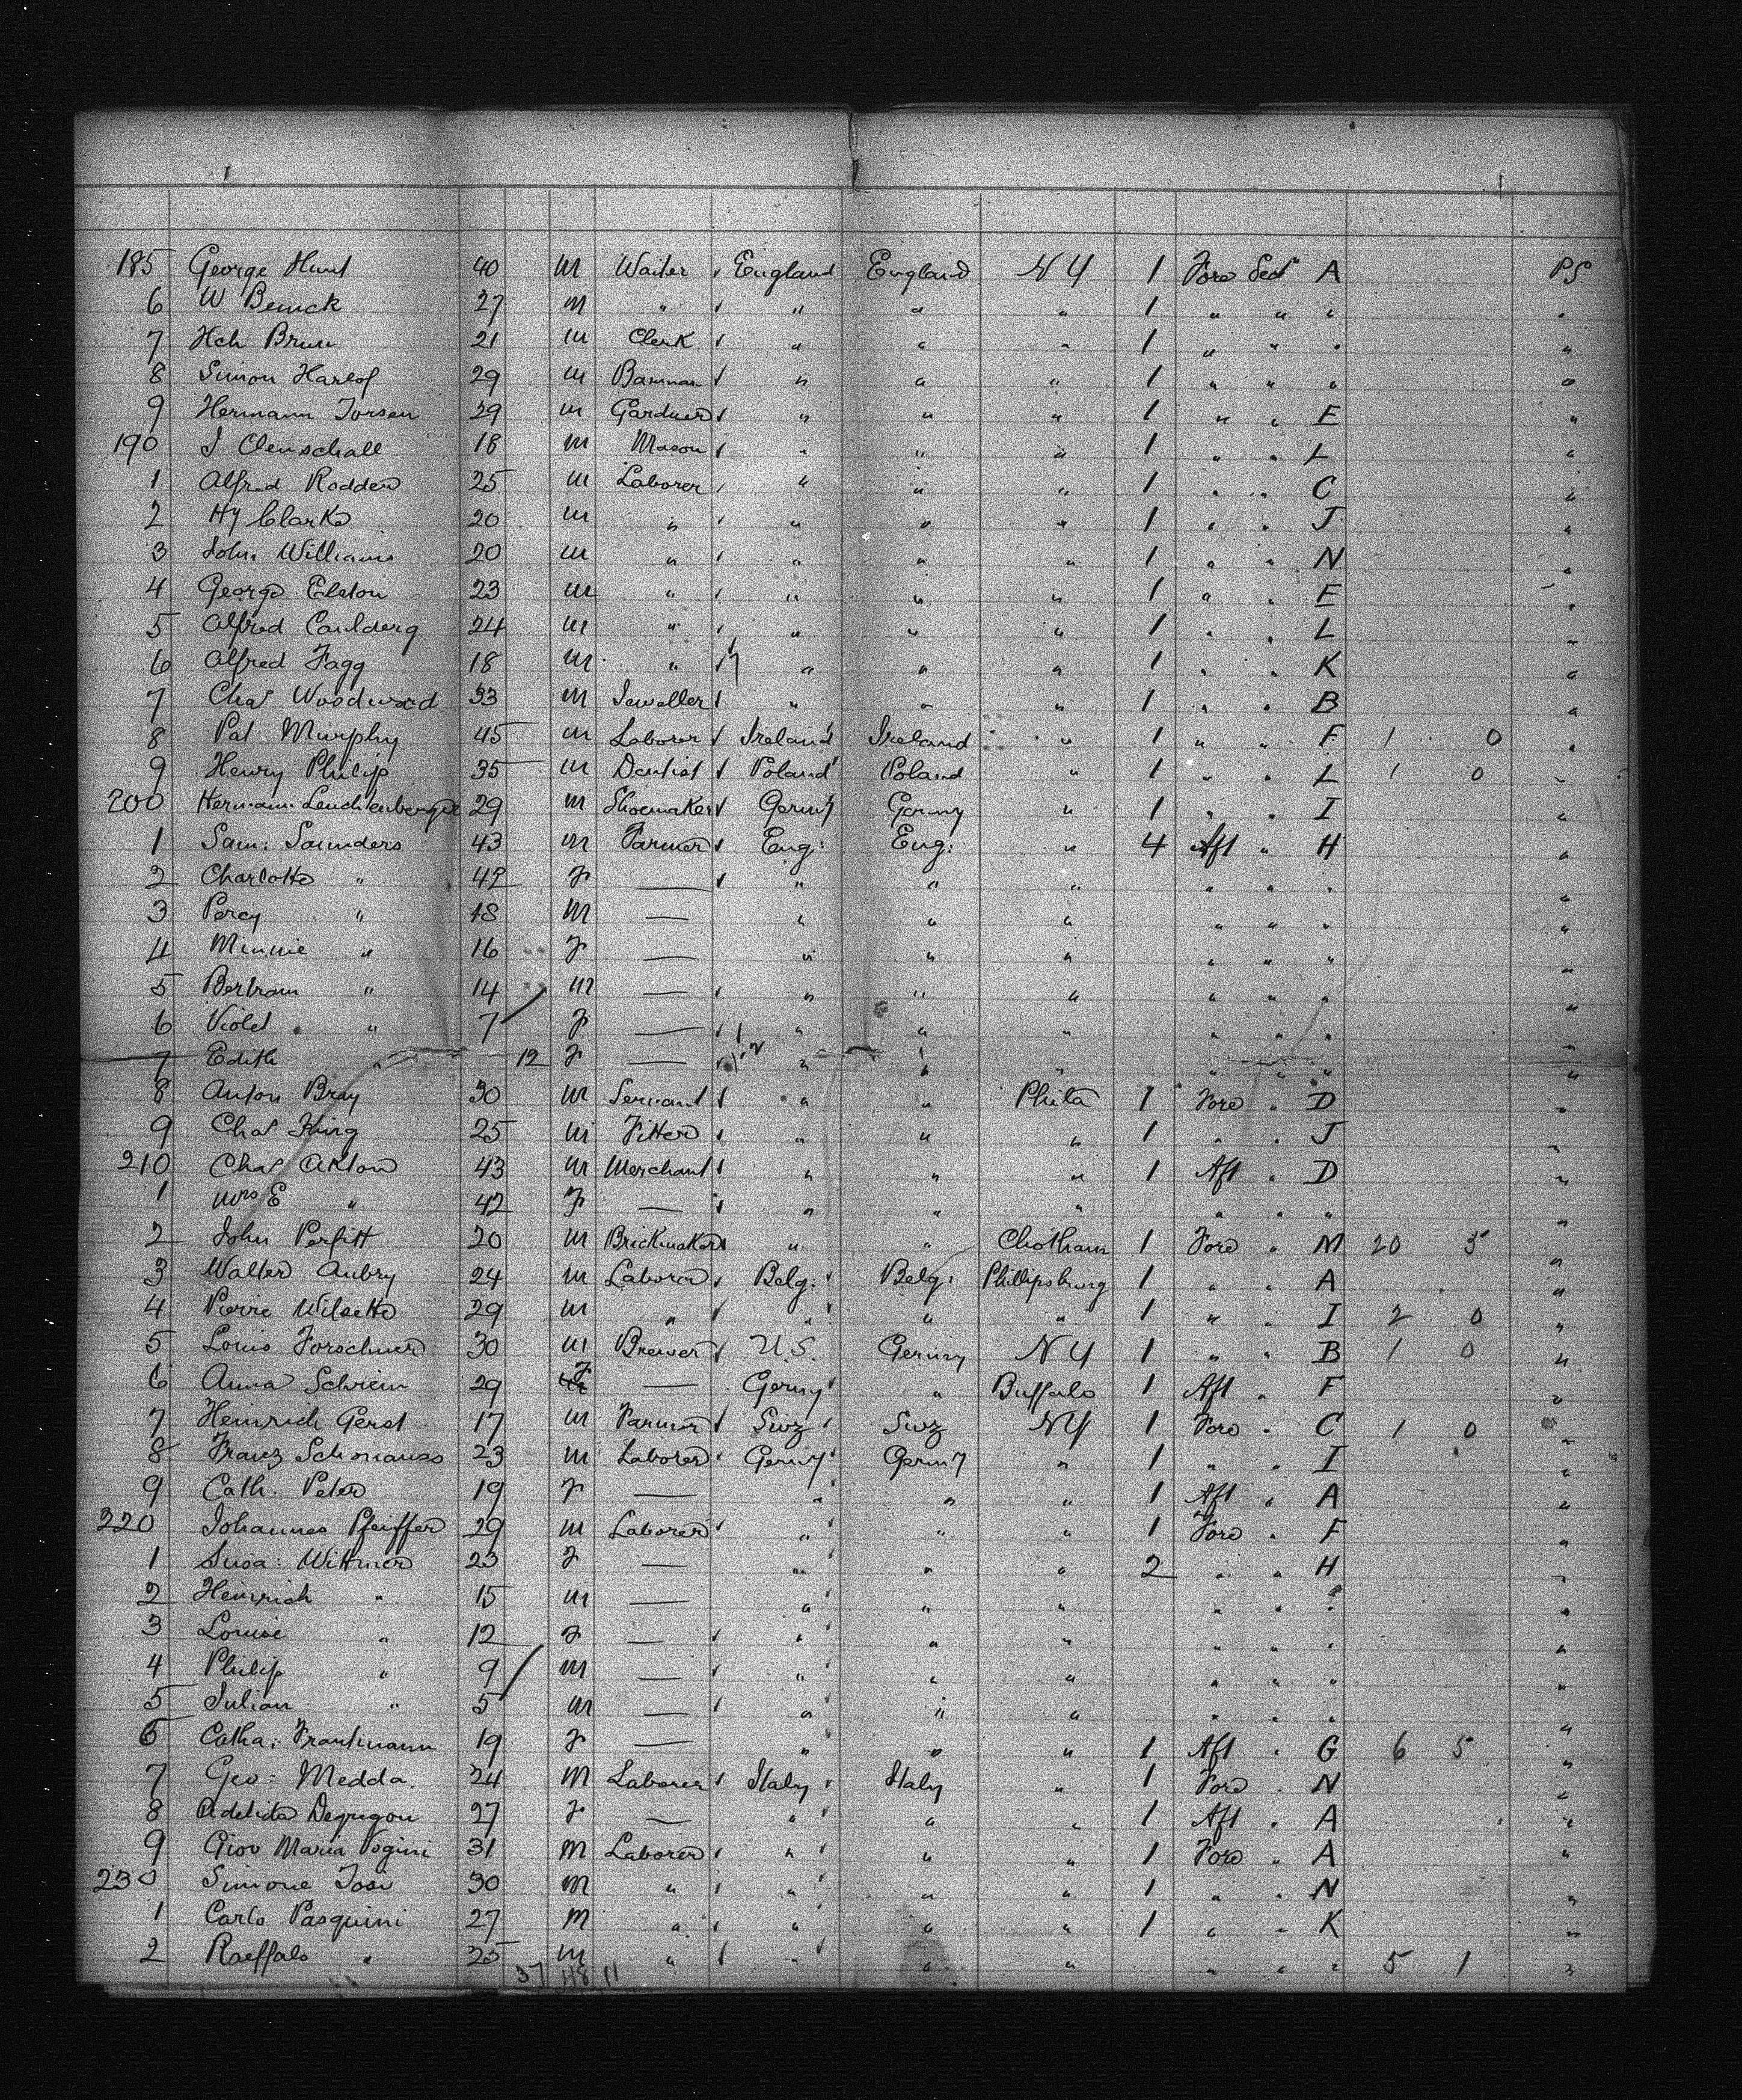 185 George Hunt 40 M Waiter England England NY 1 Fore Sect A PS
6 W Benick 27 M " " " " 1 " " " "
7 Hch Brun 21 M Clerk " " " 1 " " " "
8 Simon Harlof 29 M Barman " " " 1 " " " "
9 Hermann Torsen 29 M Gardner " " " 1 " " E "
190 J Clenschall 18 M Mason " " " 1 " " L "
1 Alfred Rodder 25 M Laborer " " " 1 " " C "
2 Hy Clarke 20 M " " " " 1 " " J "
3 John Williams 20 M " " " " 1 " " N "
4 George Elston 23 M " " " " 1 " " E "
5 Alfred Caulderg 24 M " " " " 1 " " L "
6 Alfred Fagg 18 M " " " " 1 " " K "
7 Chas Woodward 33 M Jeweller " " " 1 " " B "
8 Pat Murphy 45 M Laborer Ireland Ireland " 1 " " F 1 0 "
9 Henry Philip 35 M Dentist Poland Poland " 1 " " L 1 0 "
200 Hermann Leuchtenberger 29 M Shoemaker Germy Germy " 1 " " I "
1 Sam: Saunders 43 M Farmer Eng: Eng: " 4 Aft " H "
2 Charlotte " 42 F — " " " " " " "
3 Percy " 18 M — " " " " " " "
4 Minnie " 16 F — " " " " " " "
5 Bertram " 14 M — " " " " " " "
6 Violet " 7 F — " " " " " " "
7 Edith " 12 F — " " " " " " "
8 Anton Bray 30 M Servant " " Phila 1 Fore " D "
9 Chas King 25 M Fitter " " " 1 " " J "
210 Chas Akton 43 M Merchant " " " 1 Aft " D "
1 Mrs E " 42 F — " " " " " " "
2 John Perfitt 20 M Brickmaker " " Chotham 1 Fore " M 20 5 "
3 Walter Aubry 24 M Laborer Belg: Belg: Phillipsburg 1 " " A "
4 Pierre Wilsette 29 M " " " " 1 " " I 2 0 "
5 Louis Forschner 30 M Brewer U.S. Germy NY 1 " " B 1 0 "
6 Anna Schrein 29 F — Germy " Buffalo 1 Aft " F "
7 Heinrich Gerst 17 M Farmer Swz Swz NY 1 Fore " C 1 0 "
8 Franz Schonauss 23 M Laborer Germy Germy " 1 " " I "
9 Cath. Peter 19 F — " " " 1 Aft " A "
220 Johannes Pfeiffer 29 M Laborer " " " 1 Fore " F "
1 Susa: Wittmer 23 F — " " " 2 " " H "
2 Heinrich " 15 M — " " " " " " "
3 Louise " 12 F — " " " " " " "
4 Philip " 9 M — " " " " " " "
5 Julian " 5 M — " " " " " " "
6 Catha: Trautmann 19 F — " " " 1 Aft " G 6 5 "
7 Geo: Medda 24 M Laborer Italy Italy " 1 Fore " N "
8 Adelida Degrugon 27 F — " " " 1 Aft " A "
9 Giov Maria Vogini 31 M Laborer " " " 1 Fore " A "
230 Simone Tosi 30 M " " " " 1 " " N "
1 Carlo Pasquini 27 M " " " " 1 " " K "
2 Raeffalo " 25 M " " " " " " " 5 1 "
37 48 11